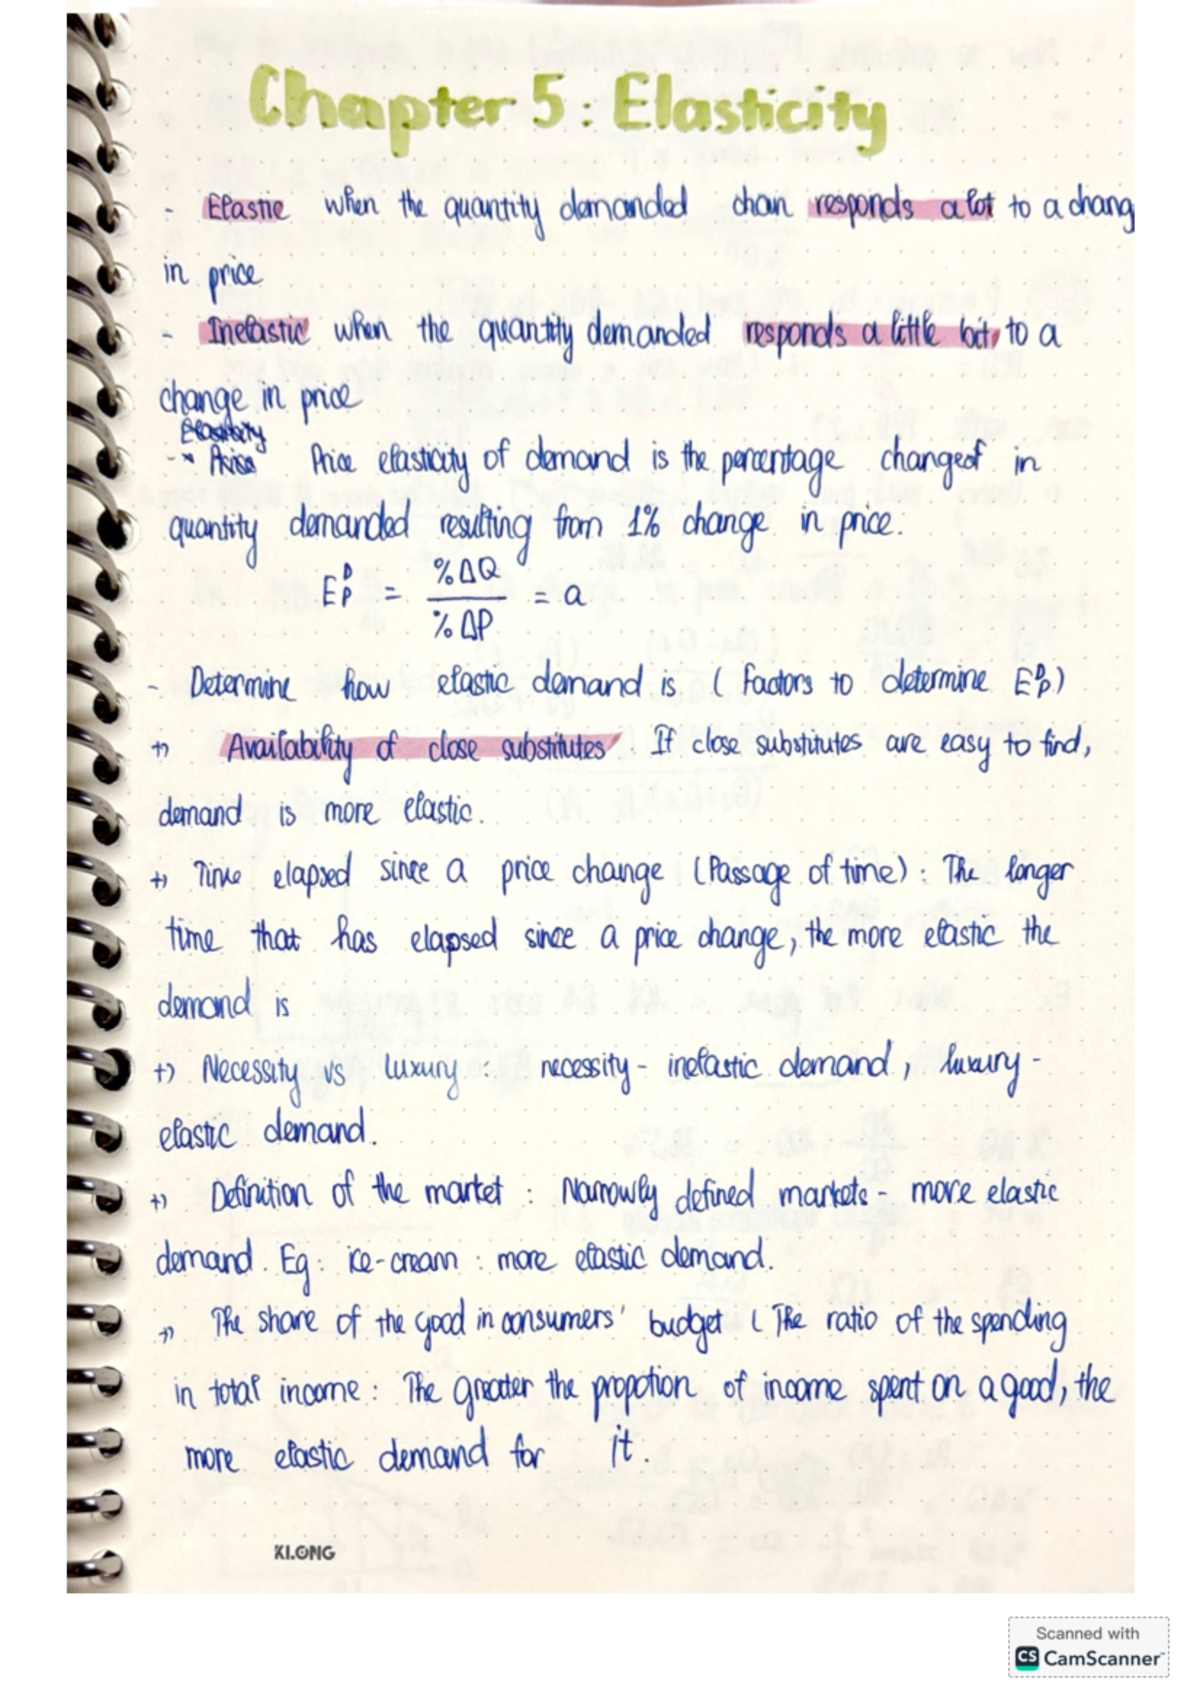 Chapter 5 : Elasticity
- Elastic when the quantity demanded chan responds a lot to a chang
in price
- Inelastic when the quantity demanded responds a little bit, to a
change in price
Elasticity
-* Price Price elasticity of demand is the percentage changeof in
quantity demanded resulting from 1% change in price.
E^D_P = %ΔQ / %ΔP = a
- Determine how elastic demand is ( Factors to determine E^D_P )
+) Availability of close substitutes. If close substitutes are easy to find,
demand is more elastic.
+) Time elapsed since a price change (Passage of time) : The longer
time that has elapsed since a price change, the more elastic the
demand is
+) Necessity vs luxury : necessity - inelastic demand, luxury -
elastic demand.
+) Definition of the market : Narrowly defined markets - more elastic
demand. Eg: ice-cream : more elastic demand.
+) The share of the good in consumers' budget ( The ratio of the spending
in total income : The greater the propotion of income spent on a good, the
more elastic demand for it.
KLONG
Scanned with
CS CamScanner